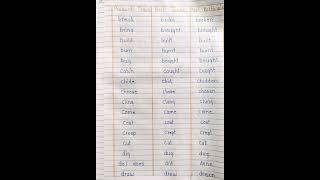 Present Tense Past Tense Past Participle
break broke broken
bring brought brought
build built built
burn burnt burnt
buy bought bought
catch caught caught
chide chid chidden
choose chose chosen
cling clung clung
come came come
cost cost cost
creep crept crept
cut cut cut
dig dug dug
do does did done
draw drew drawn